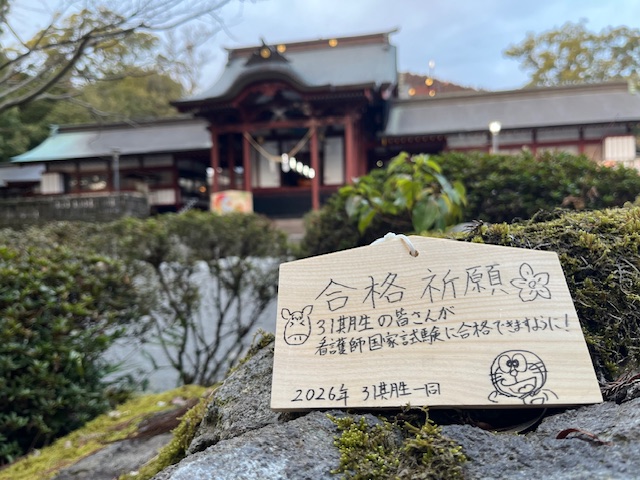 合格祈願
31期生の皆さんが
看護師国家試験に合格できますように!
2026年 31期生一同